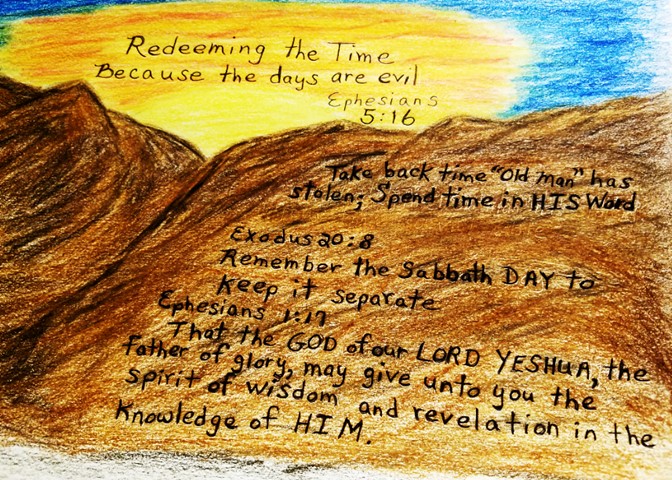 Redeeming the Time
Because the days are evil
Ephesians
5:16
Take back time "Old man" has
stolen; Spend time in HIS Word
Exodus 20:8
Remember the Sabbath DAY to
keep it separate
Ephesians 1:17
That the GOD of our LORD YESHUA, the
Father of glory, may give unto you the
spirit of wisdom and revelation in the
knowledge of HIM.